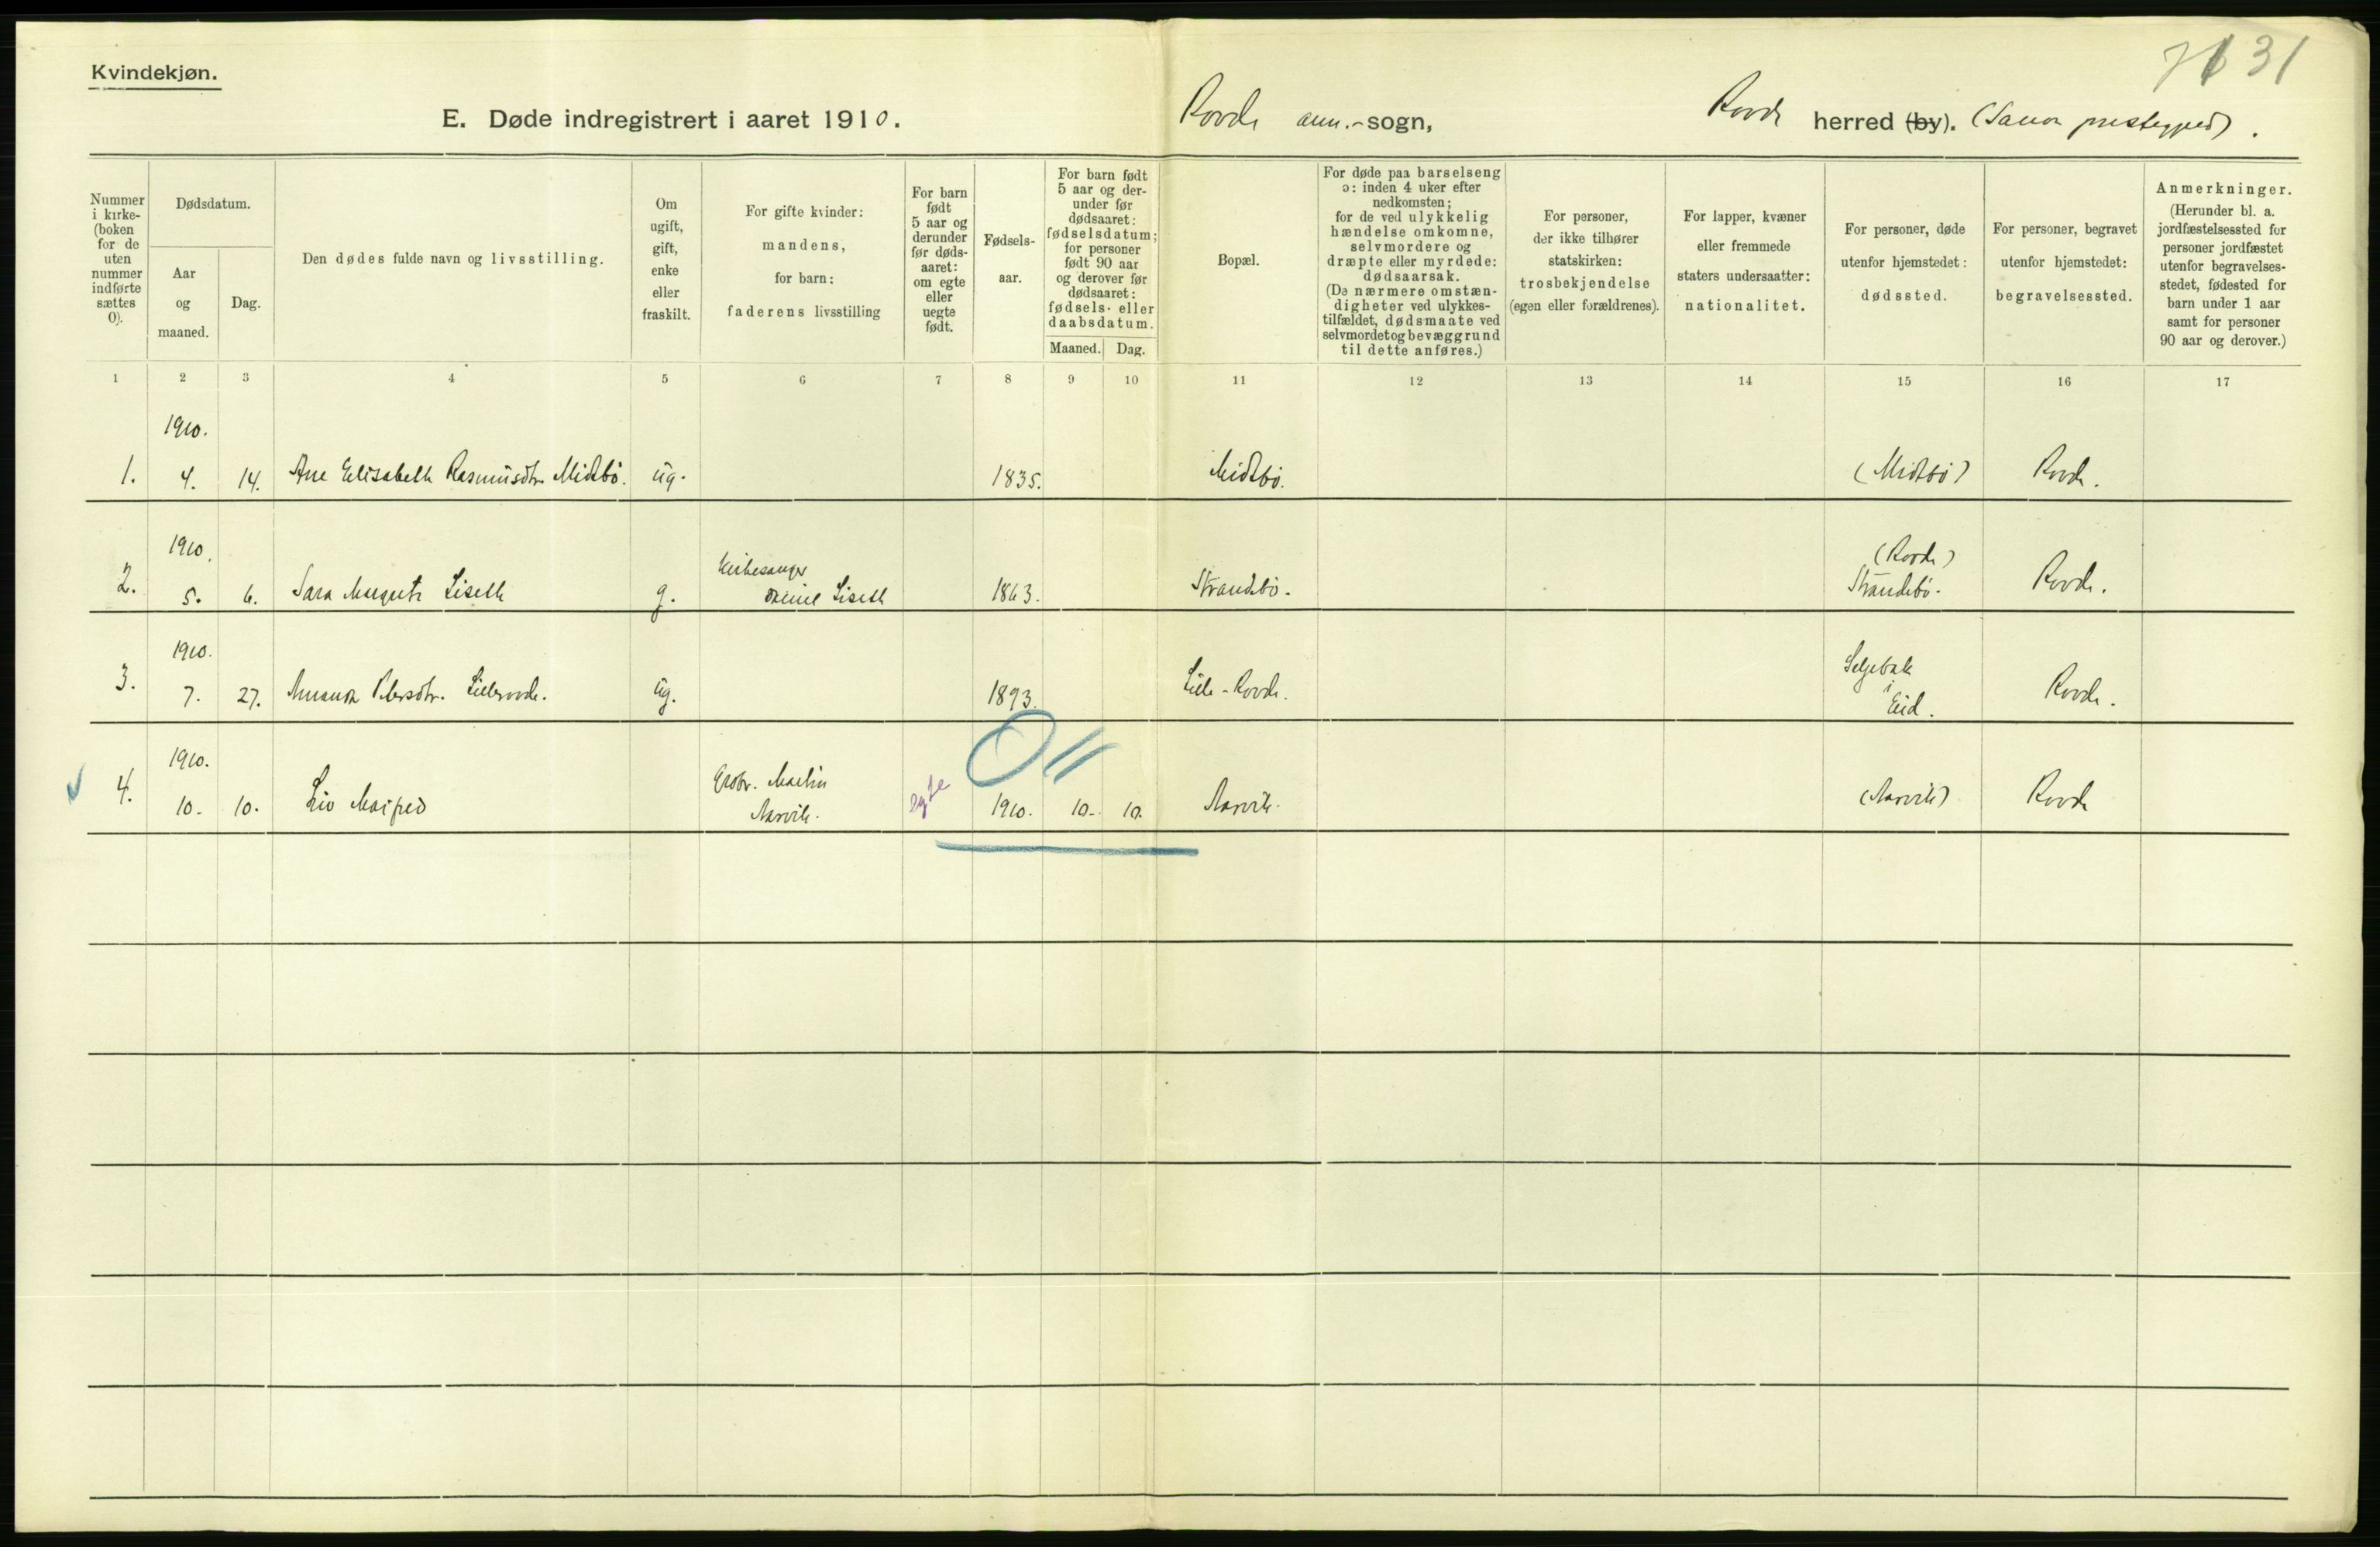 Kvindekjøn.
31
E. Døde indregistrert i aaret 1910.
Rovde ann.-sogn,
Rovde herred (by). (Sande prestegjeld).
Nummer i kirke- (boken for de uten nummer indførte sættes 0).
Dødsdatum.
Aar og maaned.
Dag.
Den dødes fulde navn og livsstilling.
Om ugift, gift, enke eller fraskilt.
For gifte kvinder: mandens, for barn: faderens livsstilling
For barn født 5 aar og derunder før døds- aaret: om egte eller uegte født.
Fødsels- aar.
For barn født 5 aar og der- under før dødsaaret: fødselsdatum; for personer født 90 aar og derover før dødsaaret: fødsels- eller daabsdatum.
Maaned.
Dag.
Bopæl.
For døde paa barselseng ɔ: inden 4 uker efter nedkomsten; for de ved ulykkelig hændelse omkomne, selvmordere og dræpte eller myrdede: dødsaarsak. (De nærmere omstæn- digheter ved ulykkes- tilfældet, dødsmaate ved selvmordet og bevæggrund til dette anføres.)
For personer, der ikke tilhører statskirken: trosbekjendelse (egen eller forældrenes).
For lapper, kvæner eller fremmede staters undersaatter: nationalitet.
For personer, døde utenfor hjemstedet: dødssted.
For personer, begravet utenfor hjemstedet: begravelsessted.
Anmerkninger. (Herunder bl. a. jordfæstelsessted for personer jordfæstet utenfor begravelses- stedet, fødested for barn under 1 aar samt for personer 90 aar og derover.)
1 2 3 4 5 6 7 8 9 10 11 12 13 14 15 16 17
1910.
1. 4. 14. Ane Elisabeth Rasmusdtr. Midtbö. ug. 1835. Midtbö. (Midtbö) Rovde.
1910. Kirkesanger (Rovde)
2. 5. 6. Sara Margrete Liseth g. Liseth 1863. Strandebö. Strandebö. Rovde.
1910. Seljebak i
3. 7. 27. Petersdtr. Lillerovde. ug. 1893. Lille-Rovde. Eid. Rovde.
1910. Grdbr. Martin
4. 10. 10. Liv Maifred Aarvik. egte 1910. 10. 10. Aarvik. (Aarvik) Rovde